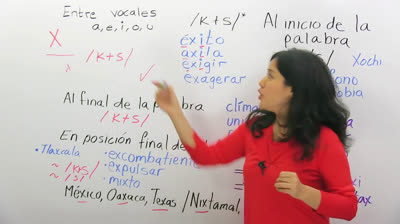 Entre vocales
a, e, i, o, u
X
/K+S/
/K+S/*
éxito
axila
exigir
exagerar
Al inicio de la
palabra
Xochi
Al final de la palabra
/K+S/
En posición final de
Tlaxcala
~ /KS/
~ /S/
• excombatiente
• expulsar
• mixto
México, Oaxaca, Texas / Nixtamal,